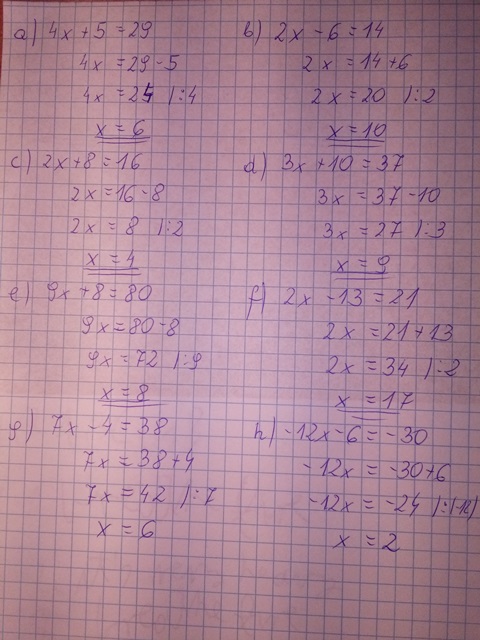 a) 4x + 5 = 29
4x = 29 - 5
4x = 24 /:4
x = 6
b) 2x - 6 = 14
2x = 14 + 6
2x = 20 /:2
x = 10
c) 2x + 8 = 16
2x = 16 - 8
2x = 8 /:2
x = 4
d) 3x + 10 = 37
3x = 37 - 10
3x = 27 /:3
x = 9
e) 9x + 8 = 80
9x = 80 - 8
9x = 72 /:9
x = 8
f) 2x - 13 = 21
2x = 21 + 13
2x = 34 /:2
x = 17
g) 7x - 4 = 38
7x = 38 + 4
7x = 42 /:7
x = 6
h) -12x - 6 = -30
-12x = -30 + 6
-12x = -24 /:(-12)
x = 2